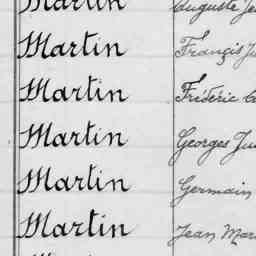 Martin Auguste
Martin François
Martin Frédéric
Martin Georges
Martin Germain
Martin Jean
Martin